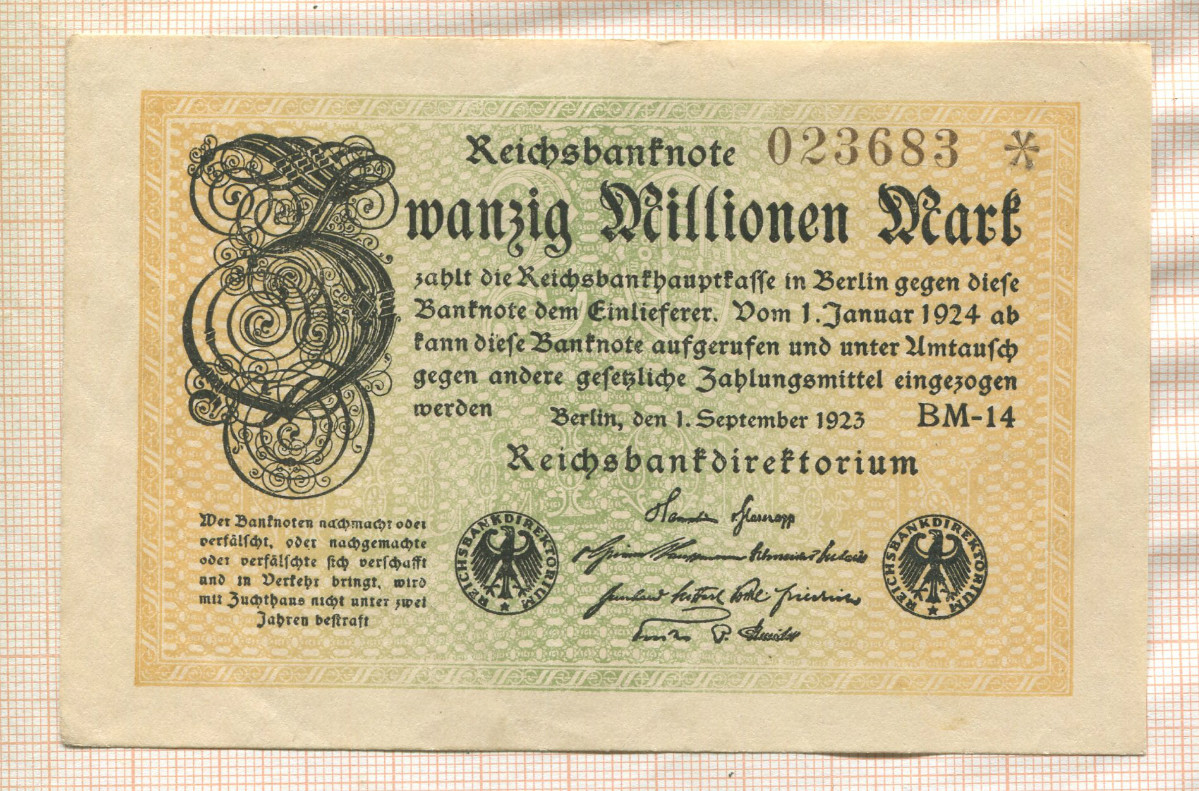 Reichsbanknote 023683 *
Zwanzig Millionen Mark
zahlt die Reichsbankhauptkasse in Berlin gegen diese
Banknote dem Einlieferer. Vom 1. Januar 1924 ab
kann diese Banknote aufgerufen und unter Umtausch
gegen andere gesetzliche Zahlungsmittel eingezogen
werden
Berlin, den 1. September 1923 BM-14
Reichsbankdirektorium
Wer Banknoten nachmacht oder
verfälscht, oder nachgemachte
oder verfälschte sich verschafft
und in Verkehr bringt, wird
mit Zuchthaus nicht unter zwei
Jahren bestraft
REICHSBANKDIREKTORIUM
REICHSBANKDIREKTORIUM